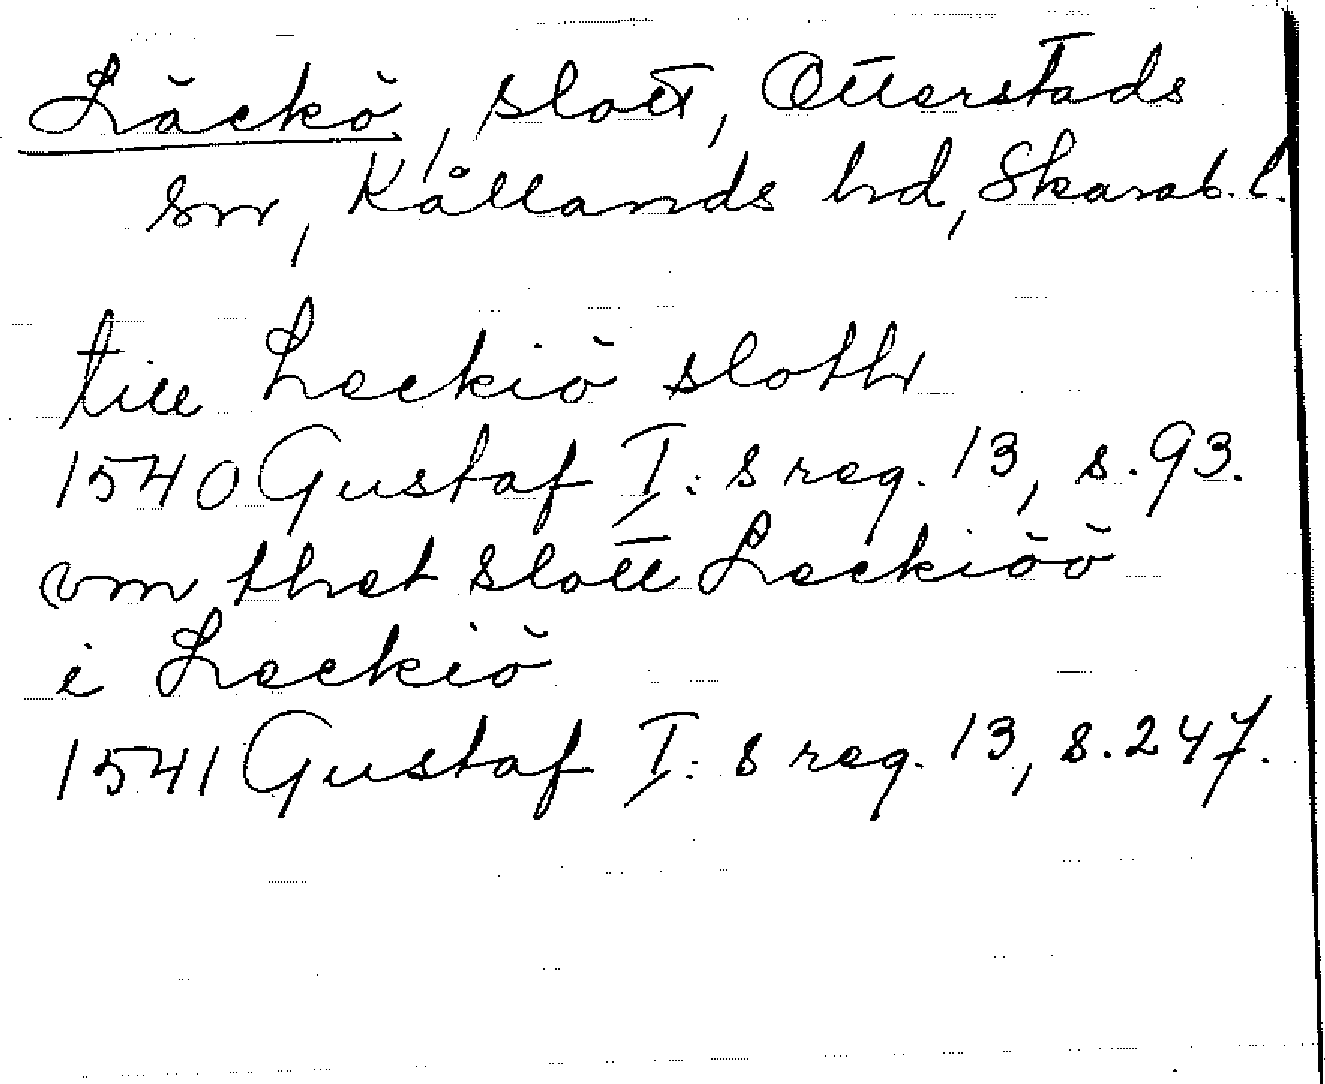 Läckö, slott, Otterstads
sn, Kållands hd, Skarab. l.
till Leckiö sloth
1540 Gustaf I:s reg. 13, s. 93.
om thet slott Leckiöö
i Leckiö
1541 Gustaf I:s reg. 13, s. 247.